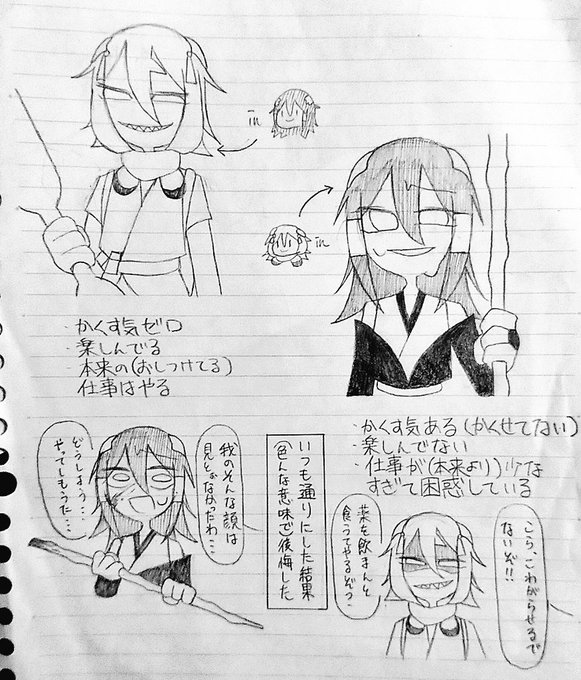 in
・かくす気ゼロ
・楽しんでる
・本来の(おしつけてる)
仕事はやる
in
・かくす気ある(かくせてない)
・楽しんでない
・仕事が(本来より)少な
すぎて困惑している
いつも通りにした結果
(色んな意味で)後悔した
我のそんな顔は
見とうなかったわ…
どうしよう…
やってしもうた…
こら、こわがらせるで
ないぞ!!
薬を飲まんと
食うてやるぞう